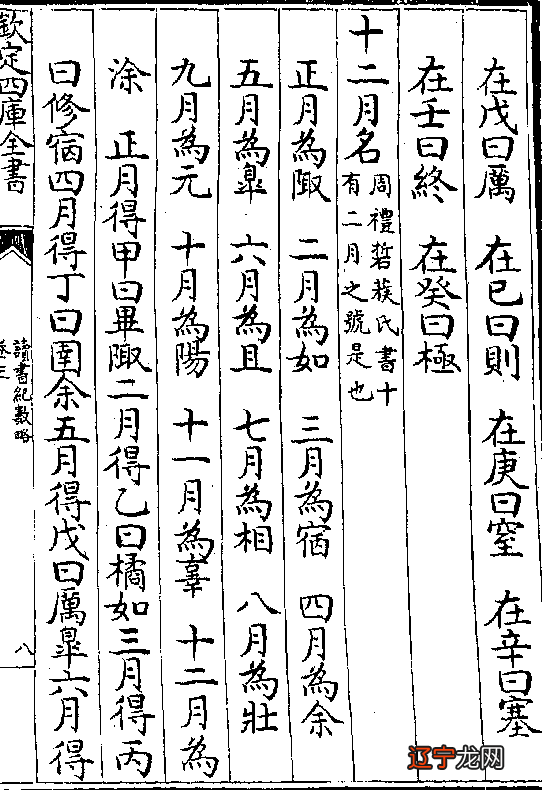 在戊曰厲　在己曰則　在庚曰窒　在辛曰塞
在壬曰終　在癸曰極
十二月名
周禮硩蔟氏書十
有二月之號是也
正月為陬　二月為如　三月為㝛　四月為余
五月為臯　六月為且　七月為相　八月為壯
九月為元　十月為陽　十一月為辜　十二月為
涂　正月得甲曰畢陬二月得乙曰橘如三月得丙
曰修㝛四月得丁曰圉余五月得戊曰厲臯六月得
欽定四庫全書
讀書紀數略
卷三
八
辽宁龙网